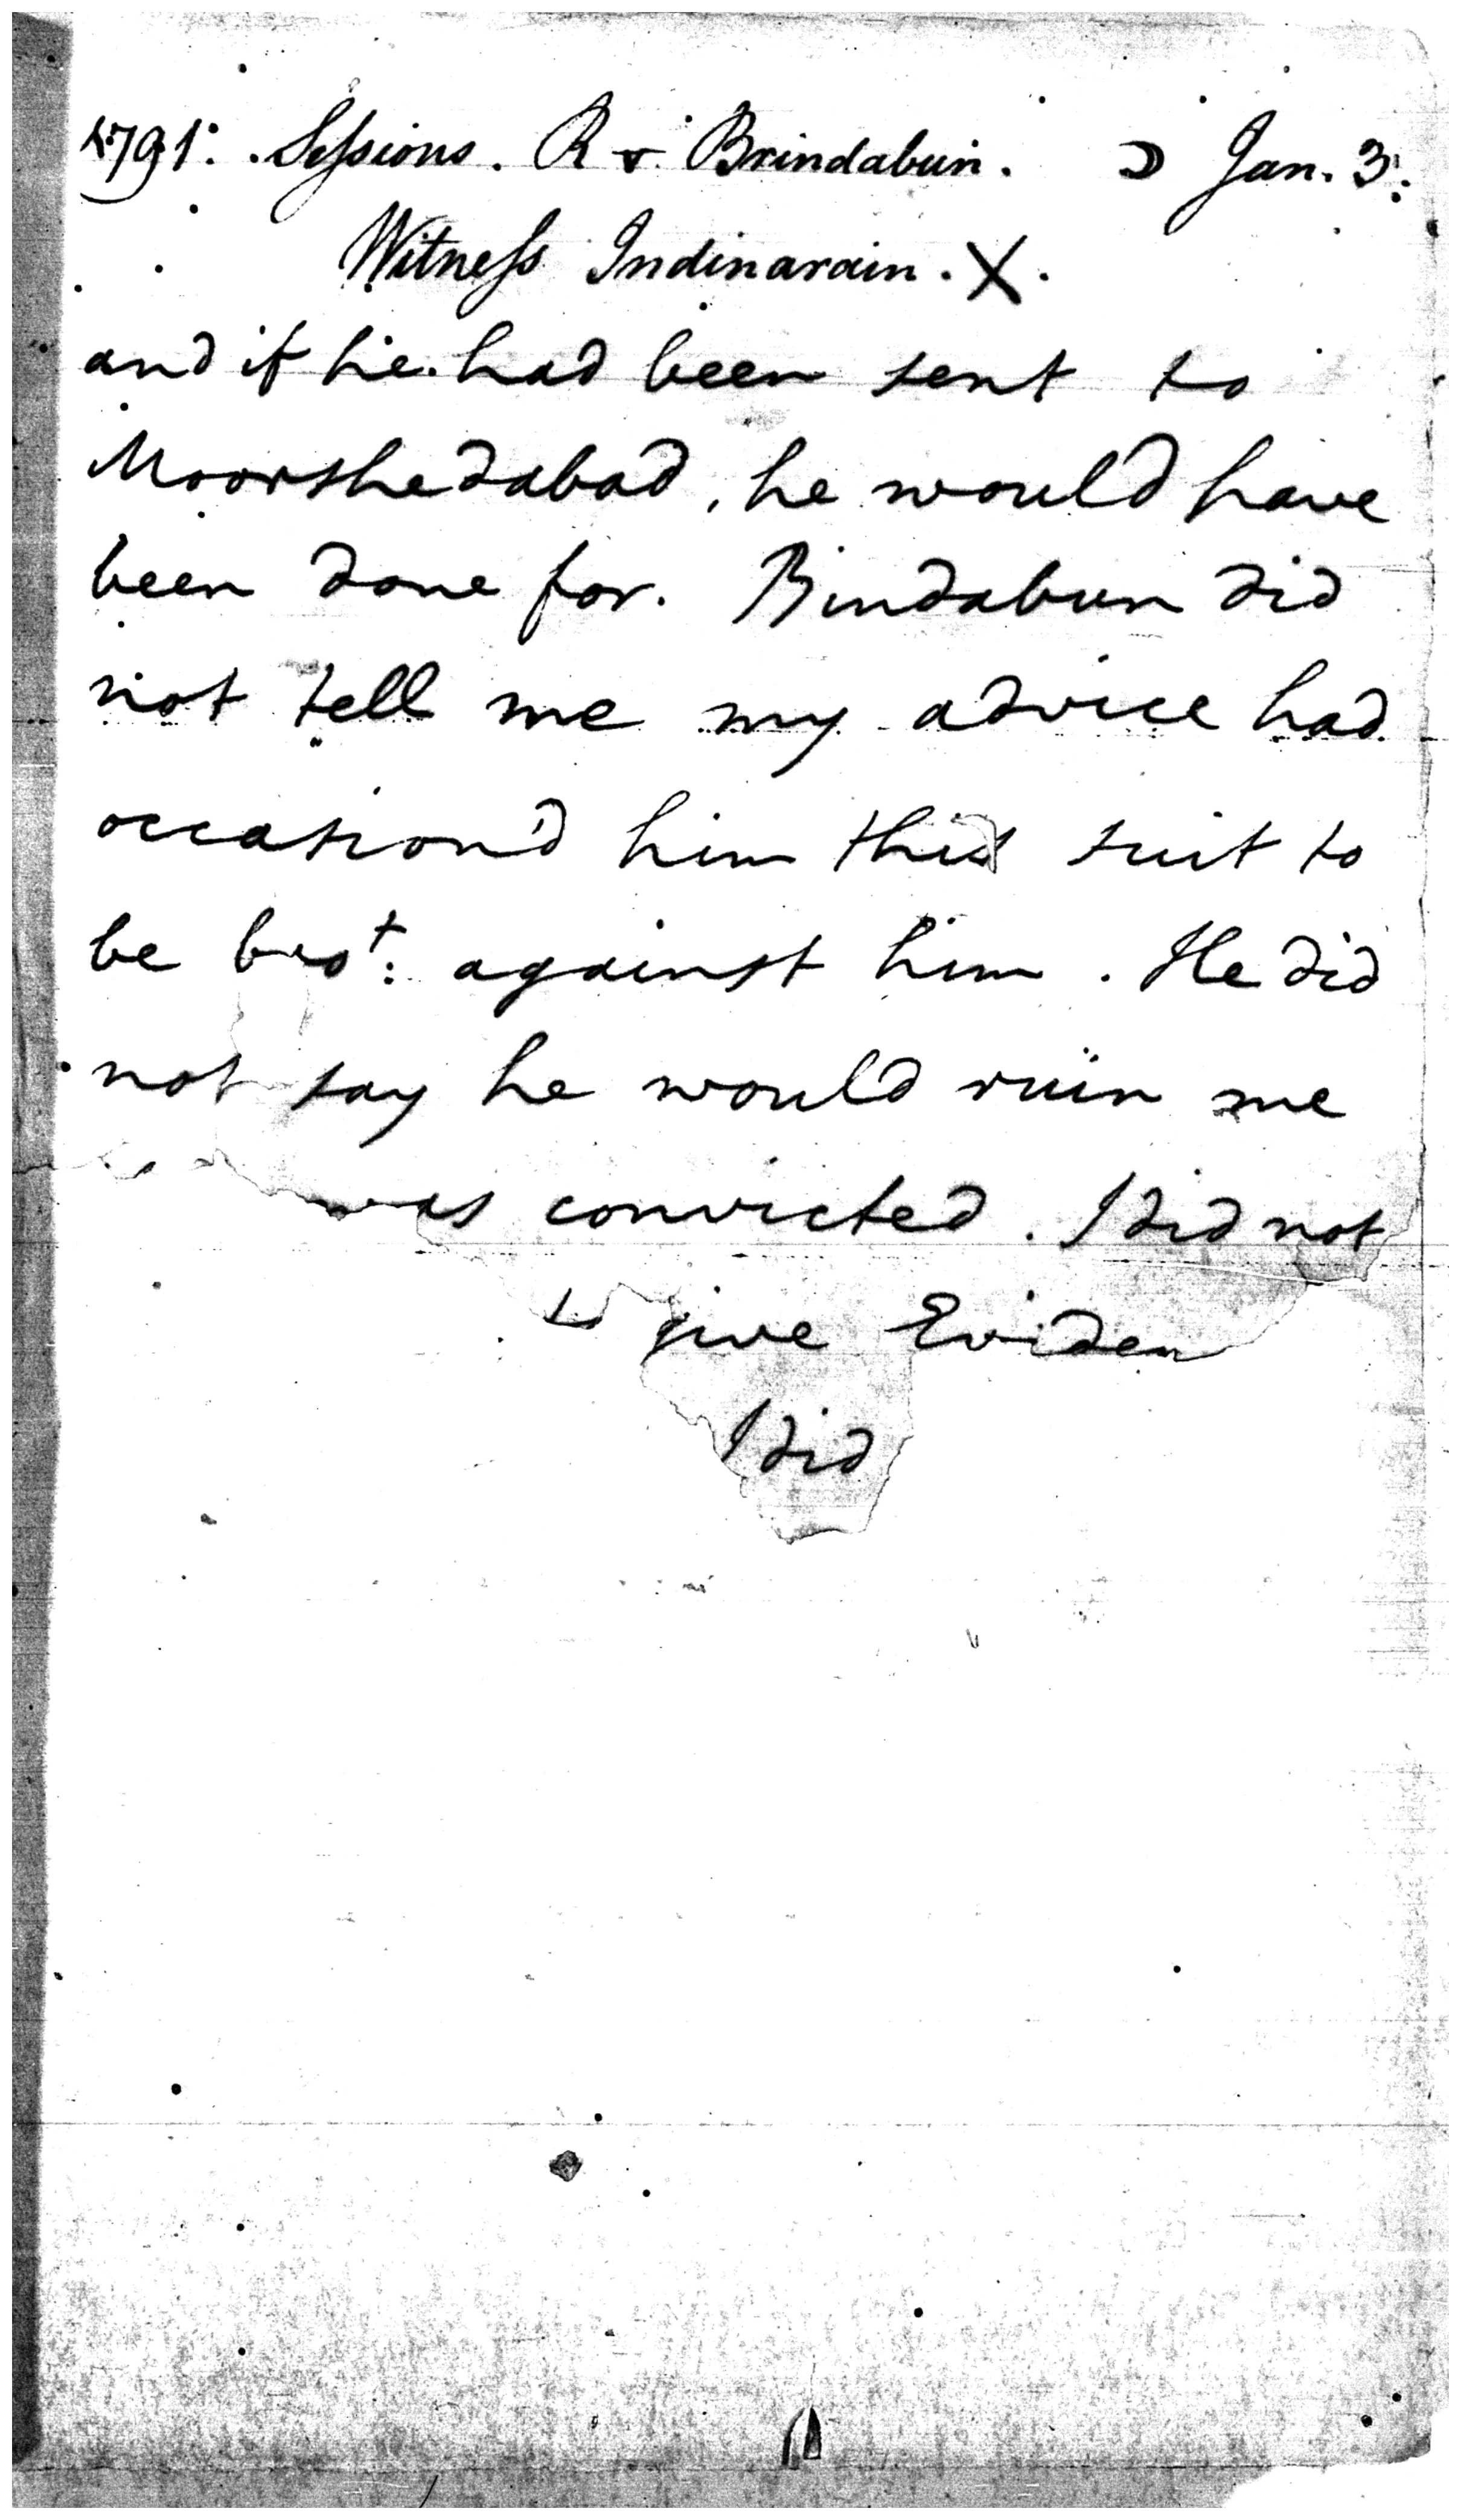 1791. Sessions. R v Brindabun. ☽ Jan. 3.
Witness Indinarain. X.
and if he had been sent to
Moorshedabad, he would have
been done for. Bindabun did
not tell me my advice had
occasion'd him this suit to
be bro.t against him. He did
not say he would ruin me
was convicted. I did not
to give Eviden
I did